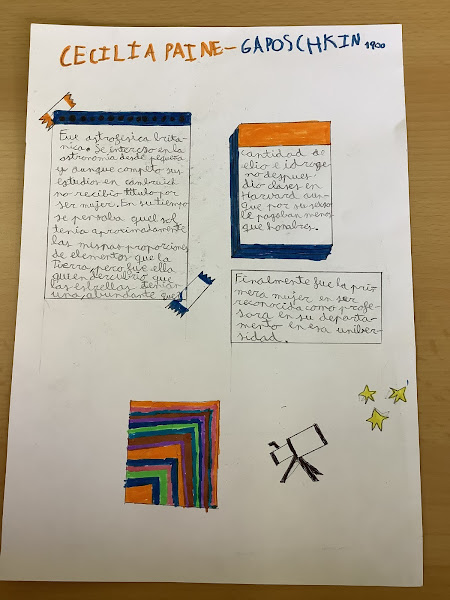 CECILIA PAINE-GAPOSCHKIN 1900
Fue astrofísica britá-
nica. Se intereso en la
astronomia desde pequeña
y aunque completo sus
estudios en cambruich
no recibio titulo por
ser mujer. En su tiempo
se pensaba que el sol
tenia aproximadamente
las mismas proporciones
de elementos que la
Tierra, pero fue ella
quien descubrio que
las estrellas tenian
una abundante
cantidad de
elio e idroge-
no despues
dio clases en
Harvard aun-
que por su sexo
le pagaban menos
que hombres.
Finalmente fue la pri-
mera mujer en ser
reconocida como profe-
sora en su departa-
mento en esa univer-
sidad.